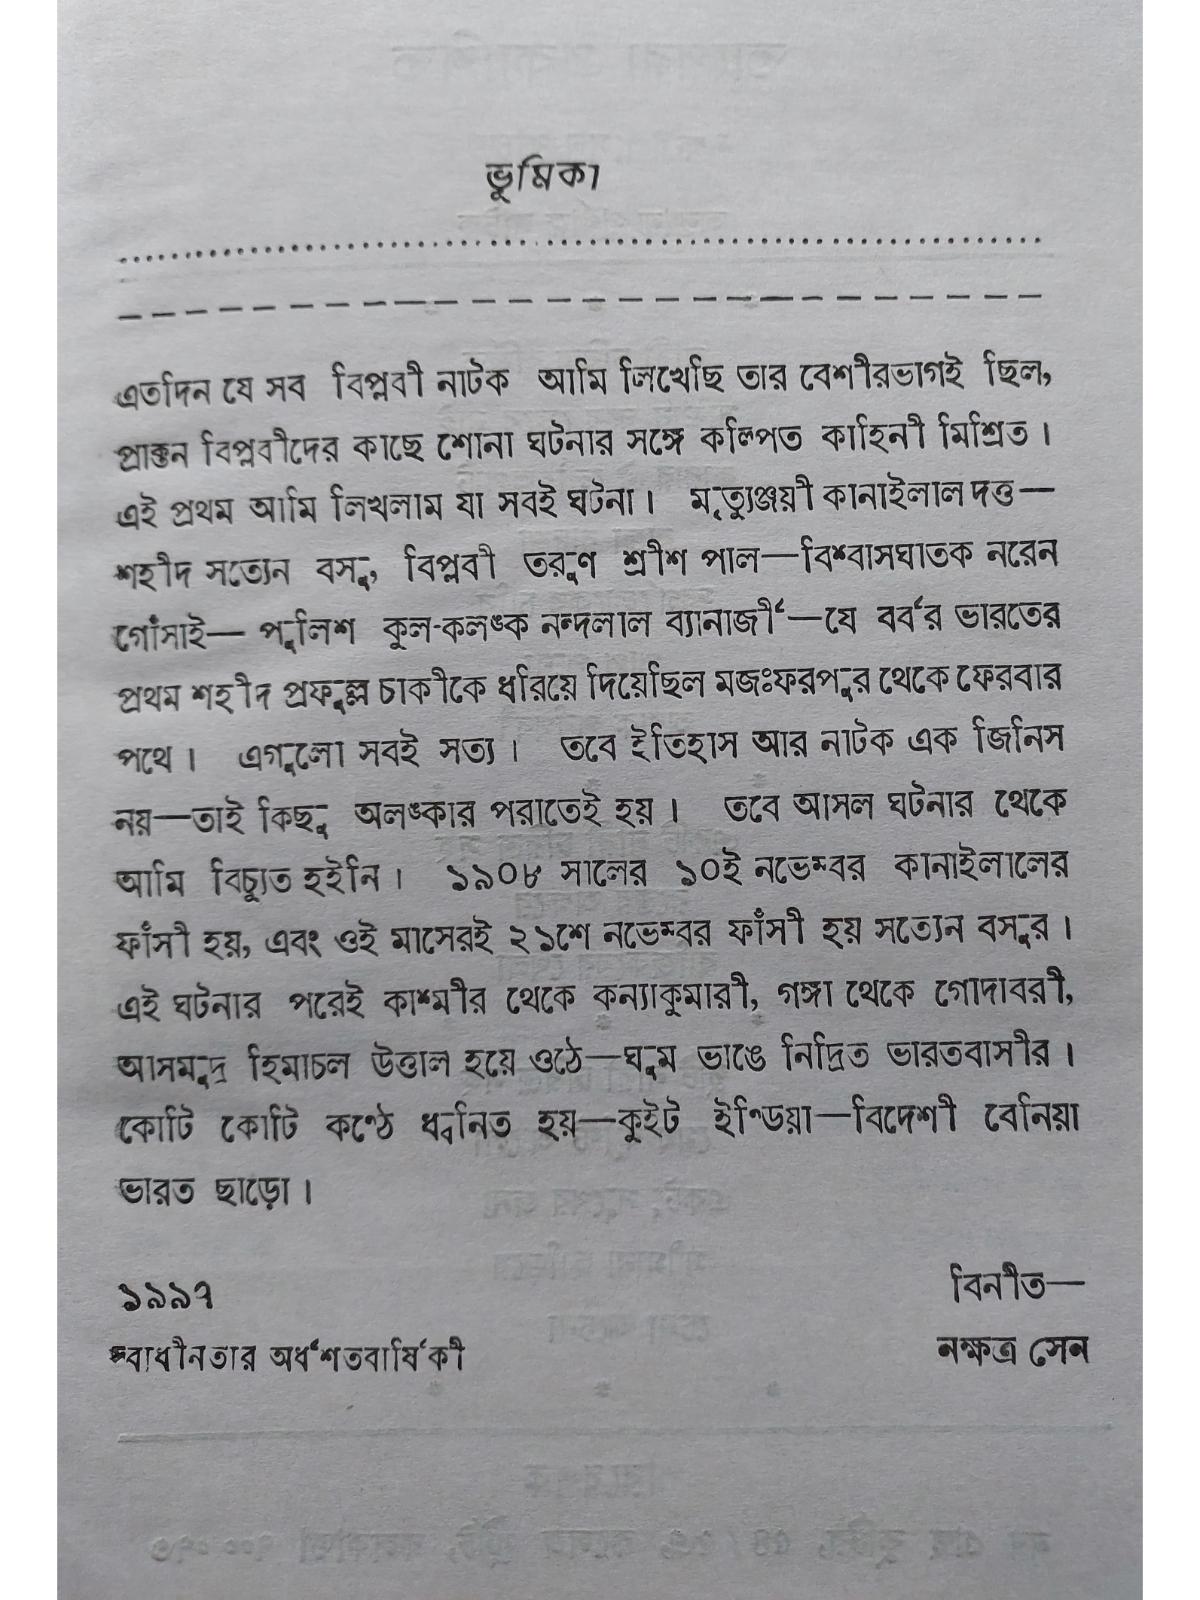 ভূমিকা
এতদিন যে সব বিপ্লবী নাটক আমি লিখেছি তার বেশীরভাগই ছিল,
প্রাক্তন বিপ্লবীদের কাছে শোনা ঘটনার সঙ্গে কল্পিত কাহিনী মিশ্রিত।
এই প্রথম আমি লিখলাম যা সবই ঘটনা। মৃত্যুঞ্জয়ী কানাইলাল দত্ত—
শহীদ সত্যেন বসু, বিপ্লবী তরুণ শ্রীশ পাল—বিশ্বাসঘাতক নরেন
গোঁসাই— পুলিশ কুল-কলঙ্ক নন্দলাল ব্যানার্জী—যে বর্বর ভারতের
প্রথম শহীদ প্রফুল্ল চাকীকে ধরিয়ে দিয়েছিল মজঃফরপুর থেকে ফেরবার
পথে। এগুলো সবই সত্য। তবে ইতিহাস আর নাটক এক জিনিস
নয়—তাই কিছু অলঙ্কার পরাতেই হয়। তবে আসল ঘটনার থেকে
আমি বিচ্যুত হইনি। ১৯০৮ সালের ১০ই নভেম্বর কানাইলালের
ফাঁসী হয়, এবং ওই মাসেরই ২১শে নভেম্বর ফাঁসী হয় সত্যেন বসুর।
এই ঘটনার পরেই কাশ্মীর থেকে কন্যাকুমারী, গঙ্গা থেকে গোদাবরী,
আসমুদ্র হিমাচল উত্তাল হয়ে ওঠে—ঘুম ভাঙে নিদ্রিত ভারতবাসীর।
কোটি কোটি কণ্ঠে ধ্বনিত হয়—কুইট ইণ্ডিয়া—বিদেশী বেনিয়া
ভারত ছাড়ো।
১৯৯৭
স্বাধীনতার অর্ধশতবার্ষিকী
বিনীত—
নক্ষত্র সেন